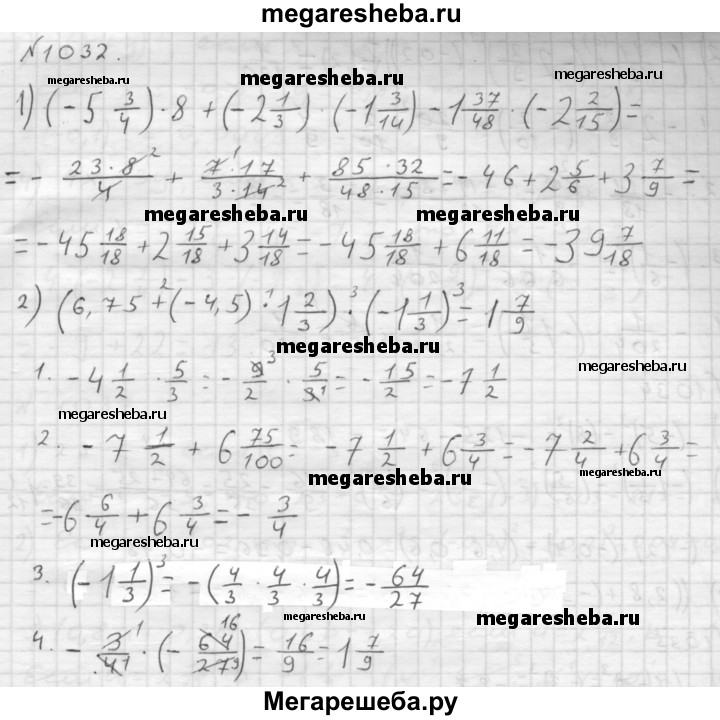 megaresheba.ru
N1032.
megaresheba.ru megaresheba.ru megaresheba.ru
1) (-5 3/4) · 8 + (-2 1/3) · (-1 3/14) - 1 37/48 · (-2 2/15) =
= - 23·8²/4 + 7¹·17/3·14² + 85·32/48·15 = -46 + 2 5/6 + 3 7/9 =
megaresheba.ru megaresheba.ru
= -45 18/18 + 2 15/18 + 3 14/18 = -45 18/18 + 6 11/18 = -39 7/18
2) (6,75 +² (-4,5) ·¹ 1 2/3) ·³ (-1 1/3)³ = 1 7/9
megaresheba.ru
1. -4 1/2 · 5/3 = - 9³/2 · 5/3¹ = - 15/2 = -7 1/2
megaresheba.ru
megaresheba.ru
2. -7 1/2 + 6 75/100 = -7 1/2 + 6 3/4 = -7 2/4 + 6 3/4 =
megaresheba.ru megaresheba.ru
= -6 6/4 + 6 3/4 = - 3/4
megaresheba.ru
3. (-1 1/3)³ = -(4/3 · 4/3 · 4/3) = - 64/27
megaresheba.ru megaresheba.ru
4. - 3¹/4¹ · (- 64¹⁶/27⁹) = 16/9 = 1 7/9
Мегарешеба.ру